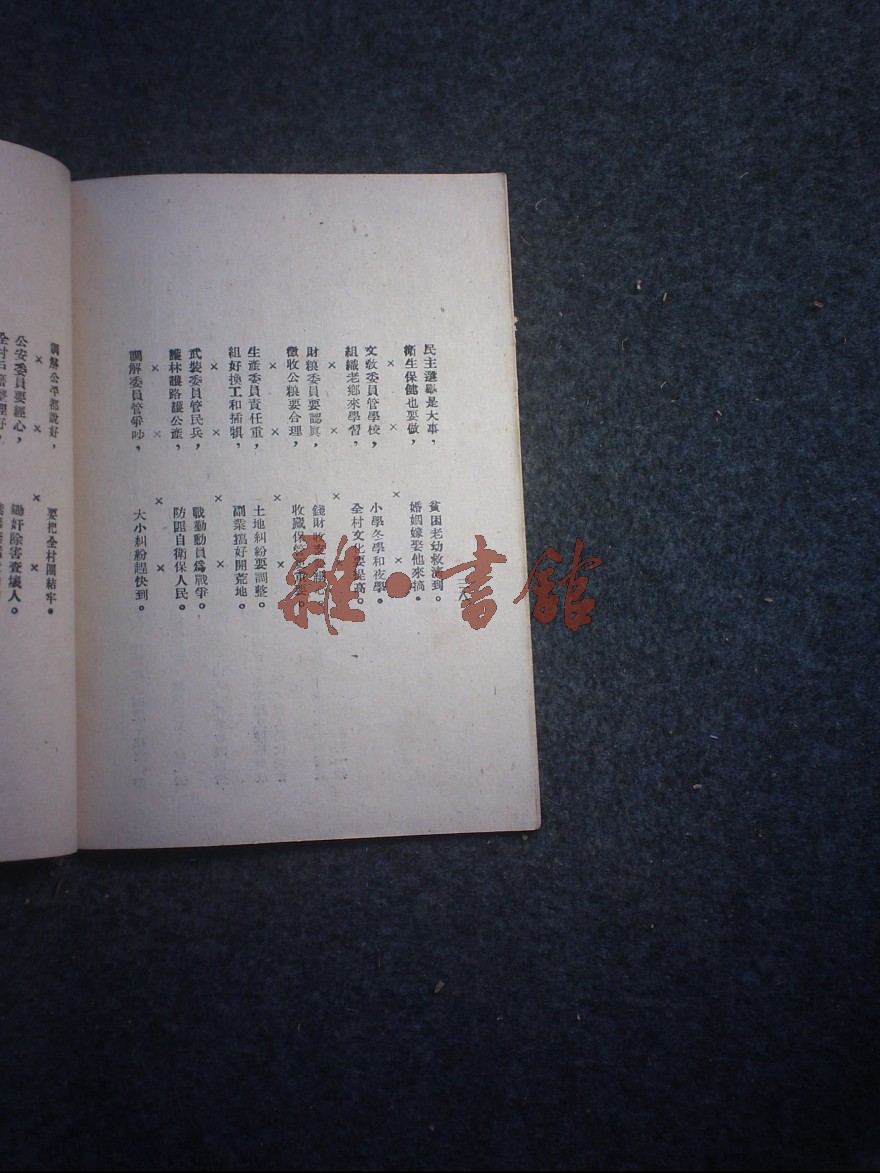 民主選舉是大事，貧困老幼救濟到。
衛生保健也要做，婚姻嫁娶他來搞。
× ×
文教委員管學校，小學冬學和夜學。
組織老鄉來學習，全村文化要提高。
× ×
財糧委員要認真，錢財收支
徵收公糧要合理，收藏保管
× ×
生產委員責任重，土地糾紛要調整。
組好換工和插犋，副業搞好開荒地。
× ×
武裝委員管民兵，戰勤動員為戰爭。
護林護路護公產，防匪自衛保人民。
× ×
調解委員管爭吵，大小糾紛趕快到。
調解公平都說好，要把全村團結牢。
× ×
公安委員要經心，鋤奸除害查壞人。
雜·書館